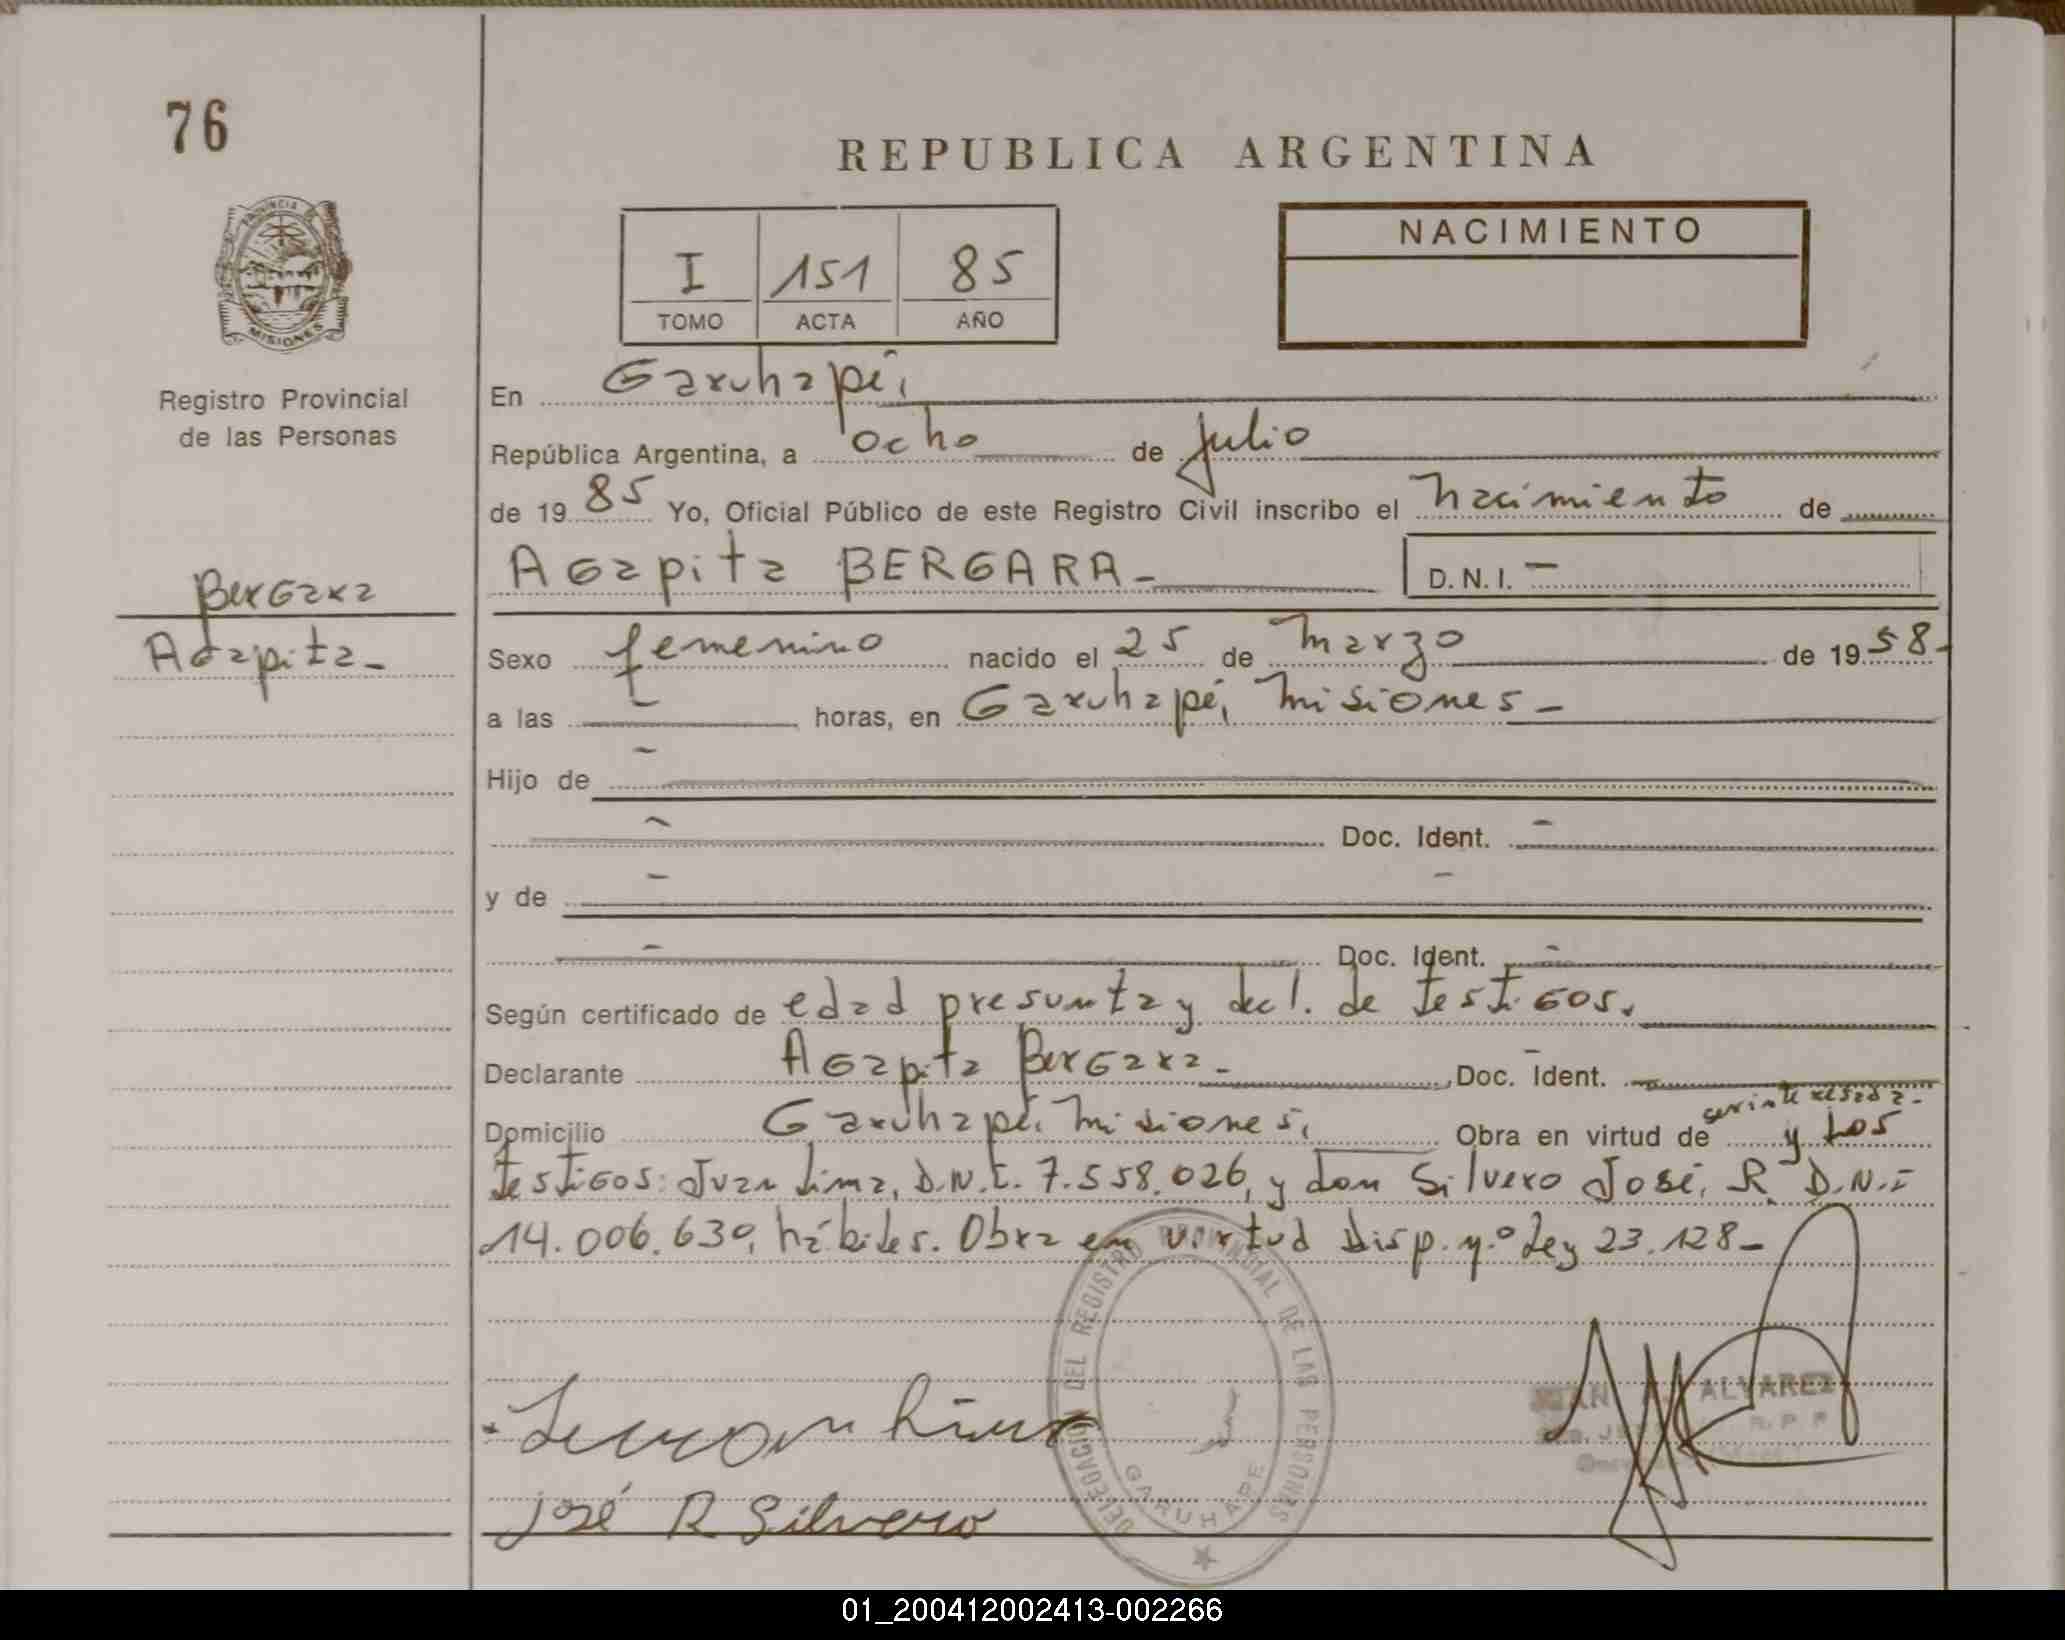 76
REPUBLICA ARGENTINA
PROVINCIA DE
MISIONES
Registro Provincial
de las Personas
I 151 85
TOMO ACTA AÑO
NACIMIENTO
En Garuhapé,
República Argentina, a ocho de Julio
de 1985 Yo, Oficial Público de este Registro Civil inscribo el nacimiento de
Agapita BERGARA- D.N.I. -
Bergara
Agapita-
Sexo femenino nacido el 25 de marzo de 1958-
a las - horas, en Garuhapé, misiones-
Hijo de -
- Doc. Ident. -
y de - -
- Doc. Ident. -
Según certificado de edad presunta y decl. de testigos.
Declarante Agapita Bergara- Doc. Ident. -
Domicilio Garuhapé, misiones, Obra en virtud de y los
testigos: Juan Lima, D.N.I. 7.558.026, y don Silvero José, R. D.N.I
14.006.630, hábiles. Obra en virtud Disp. nº Ley 23.128-
DELEGACION DEL REGISTRO PROVINCIAL DE LAS PERSONAS
GARUHAPE
ALVAREZ
R. P. P.
José R Silvero
01_200412002413-002266